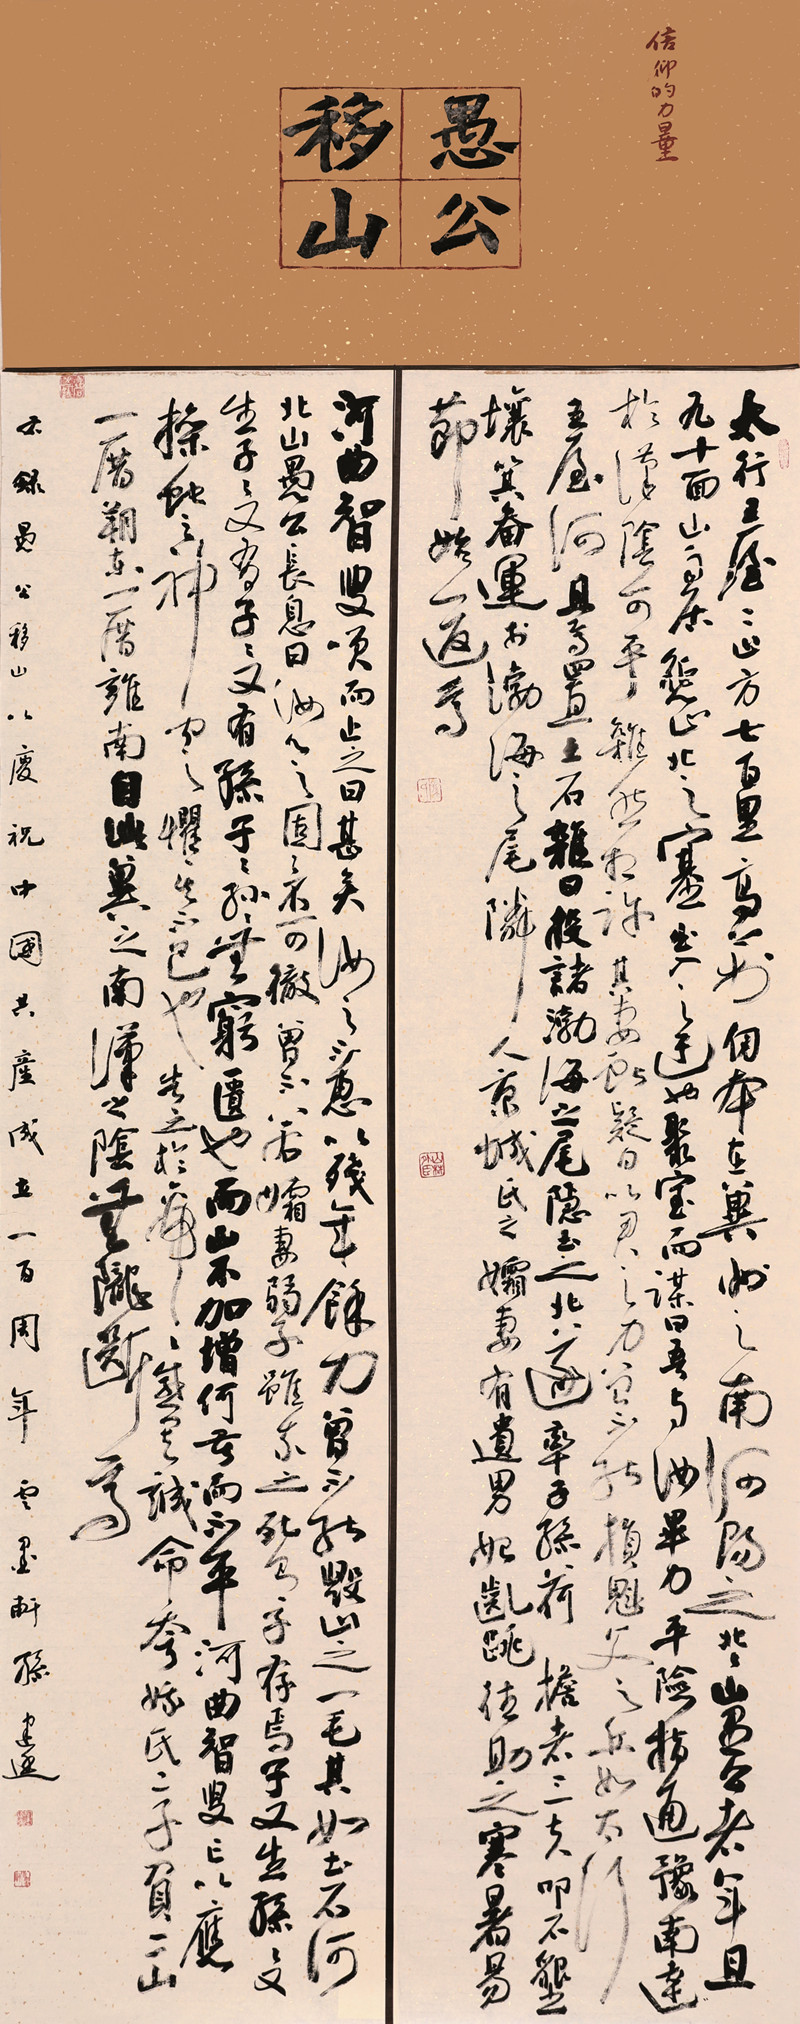 信仰的力量
愚公
移山
太行王屋二山方七百里高万仞本在冀州之南河陽之北北山愚公者年且
九十面山而居懲山北之塞出入之迂也聚室而謀曰吾与汝畢力平險指通豫南達
於漢陰可乎雜然相許其妻獻疑曰以君之力曾不能損魁父之丘如太行
王屋何且焉置土石雜曰投諸渤海之尾隱土之北遂率子孫荷擔者三夫叩石墾
壤箕畚運於渤海之尾隣人京城氏之孀妻有遺男始齔跳往助之寒暑易
節始一返焉
河曲智叟笑而止之曰甚矣汝之不惠以殘年餘力曾不能毀山之一毛其如土石何
北山愚公長息曰汝心之固固不可徹曾不若孀妻弱子雖我之死有子存焉子又生孫孫又
生子子又有子子又有孫子子孫孫無窮匱也而山不加增何苦而不平河曲智叟亡以應
操蛇之神聞之懼其不已也告之於帝帝感其誠命夸娥氏二子負二山
一厝朔東一厝雍南自此冀之南漢之陰無隴斷焉
右錄愚公移山以慶祝中國共產成立一百周年雲墨軒孫建